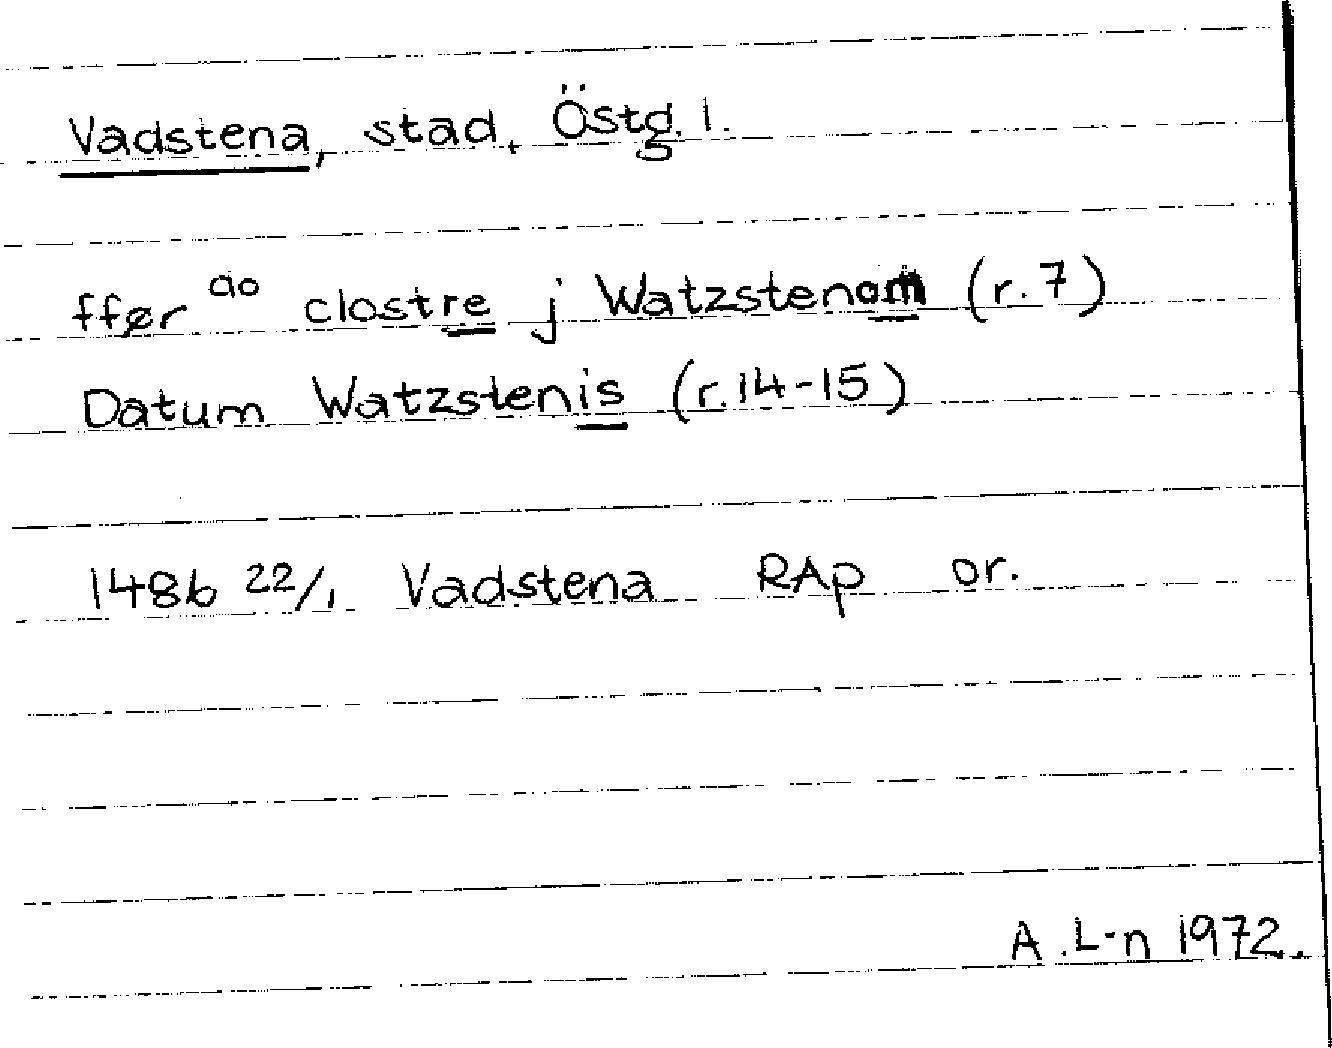 Vadstena, stad, Östg. l.
fför ao clostre j Watzstenom (r. 7)
Datum Watzstenis (r. 14-15)
1486 22/1 Vadstena RAp or.
A. L-n 1972.